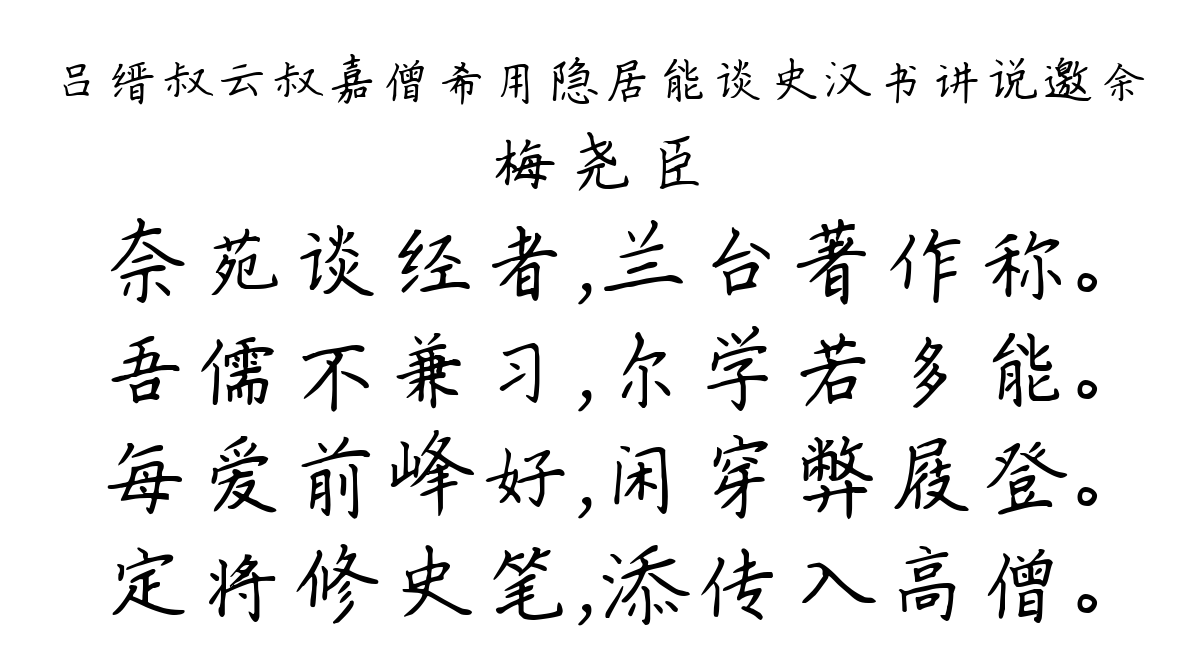 吕缙叔云叔嘉僧希用隐居能谈史汉书讲说邀余
梅尧臣
奈苑谈经者,兰台著作称。
吾儒不兼习,尔学若多能。
每爱前峰好,闲穿弊屐登。
定将修史笔,添传入高僧。